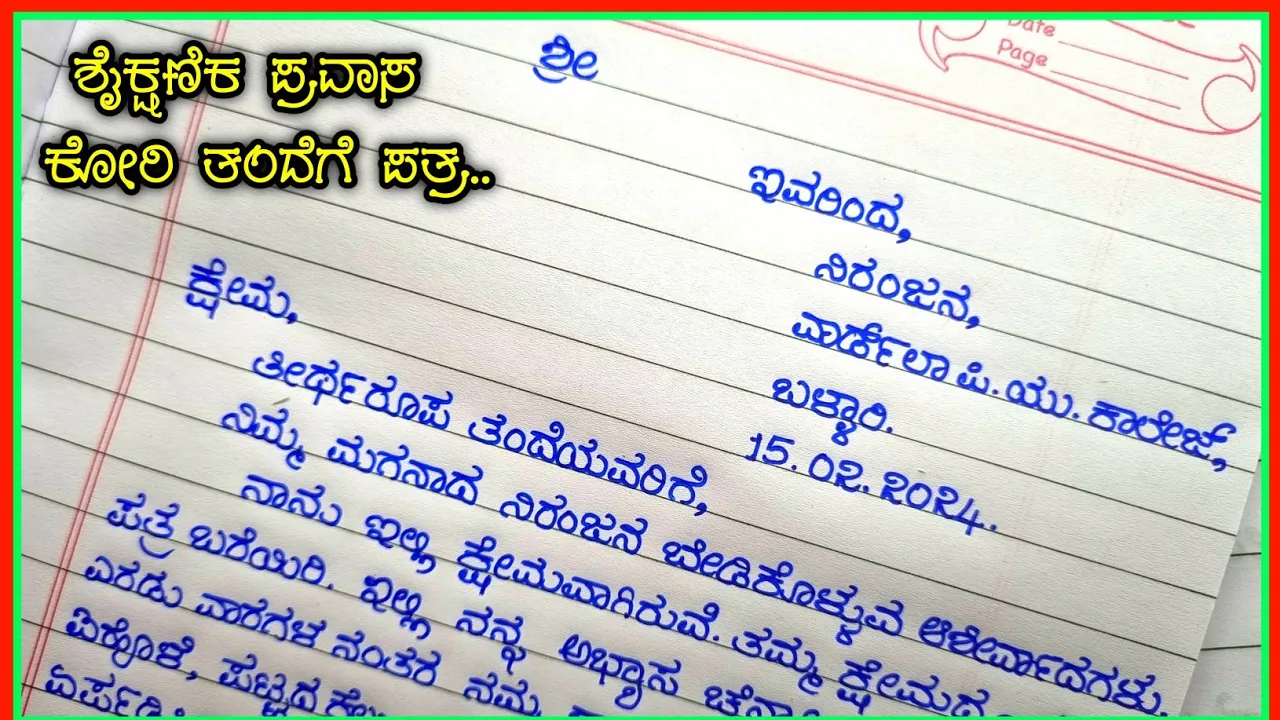 ಶೈಕ್ಷಣಿಕ ಪ್ರವಾಸ
ಕೋರಿ ತಂದೆಗೆ ಪತ್ರ..
Date
Page
ಶ್ರೀ
ಇವರಿಂದ,
ನಿರಂಜನ,
ವಾರ್ಡ್‌ಲಾ ಪಿ.ಯು. ಕಾಲೇಜ್,
ಬಳ್ಳಾರಿ.
15.0೨.೨೦೨4.
ಕ್ಷೇಮ,
ತೀರ್ಥರೂಪ ತಂದೆಯವರಿಗೆ,
ನಿಮ್ಮ ಮಗನಾದ ನಿರಂಜನ ಬೇಡಿಕೊಳ್ಳುವ ಆಶೀರ್ವಾದಗಳು.
ನಾನು ಇಲ್ಲಿ ಕ್ಷೇಮವಾಗಿರುವೆ. ತಮ್ಮ ಕ್ಷೇಮದ
ಪತ್ರ ಬರೆಯಿರಿ. ಇಲ್ಲಿ ನನ್ನ ಅಭ್ಯಾಸ
ಎರಡು ವಾರಗಳ ನಂತರ ನಮ್ಮ